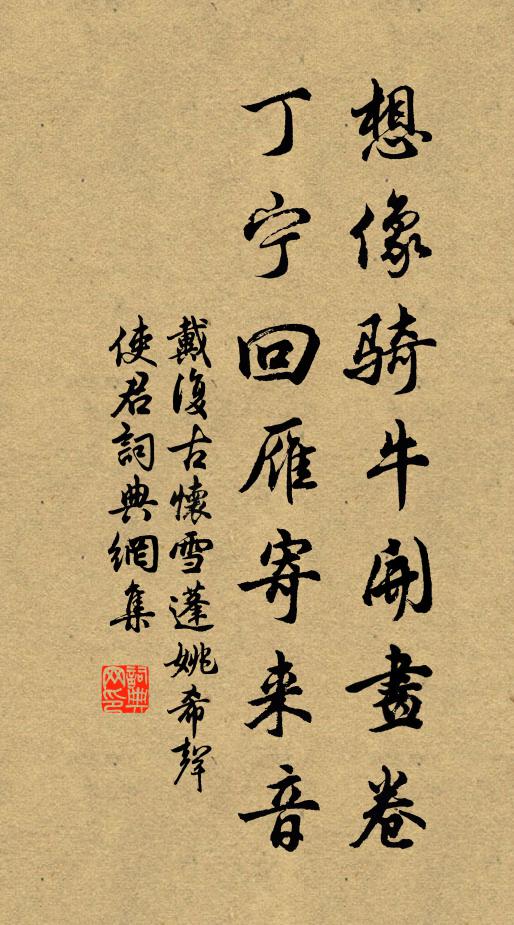 想像骑牛开画卷
丁宁回雁寄来音
戴復古懷雪蓬姚希聲
使君詞典網集
詞典
网印